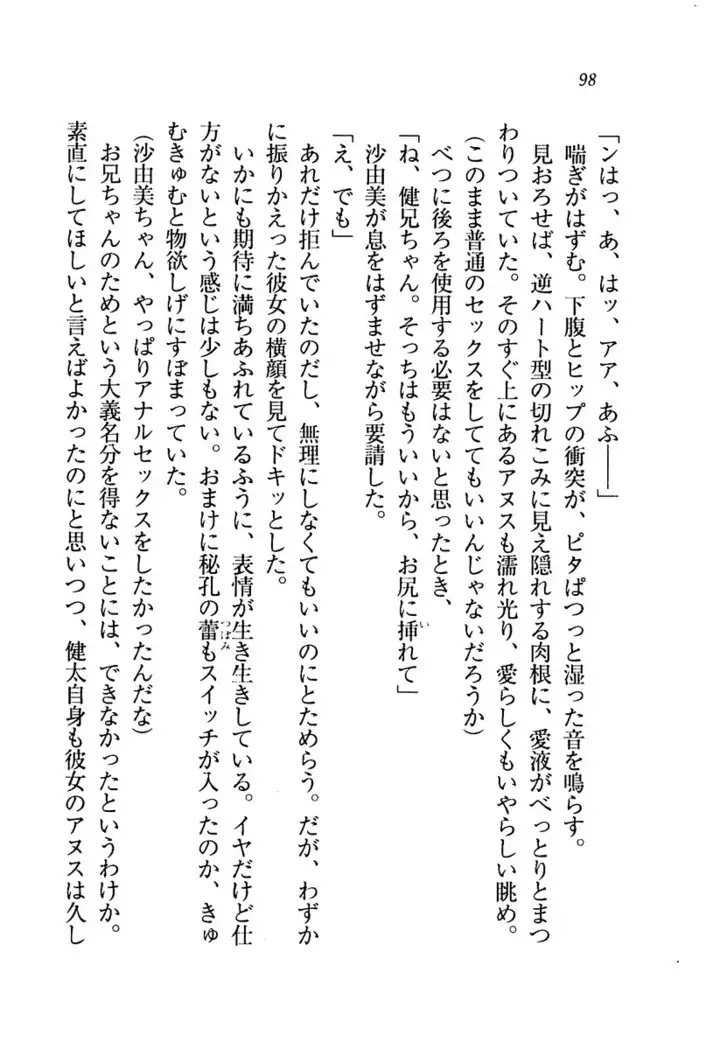 98
「ンはっ、あ、はッ、アア、あふ——」
喘ぎがはずむ。下腹とヒップの衝突が、ピタぱつっと湿った音を鳴らす。
見おろせば、逆ハート型の切れこみに見え隠れする肉根に、愛液がべっとりとまつ
わりついていた。そのすぐ上にあるアヌスも濡れ光り、愛らしくもいやらしい眺め。
(このまま普通のセックスをしててもいいんじゃないだろうか)
べつに後ろを使用する必要はないと思ったとき、
「ね、健兄ちゃん。そっちはもういいから、お尻に挿れて」
沙由美が息をはずませながら要請した。
「え、でも」
あれだけ拒んでいたのだし、無理にしなくてもいいのにとためらう。だが、わずか
に振りかえった彼女の横顔を見てドキッとした。
いかにも期待に満ちあふれているふうに、表情が生き生きしている。イヤだけど仕
方がないという感じは少しもない。おまけに秘孔の蕾もスイッチが入ったのか、きゅ
むきゅむと物欲しげにすぼまっていた。
(沙由美ちゃん、やっぱりアナルセックスをしたかったんだな)
お兄ちゃんのためという大義名分を得ないことには、できなかったというわけか。
素直にしてほしいと言えばよかったのにと思いつつ、健太自身も彼女のアヌスは久し